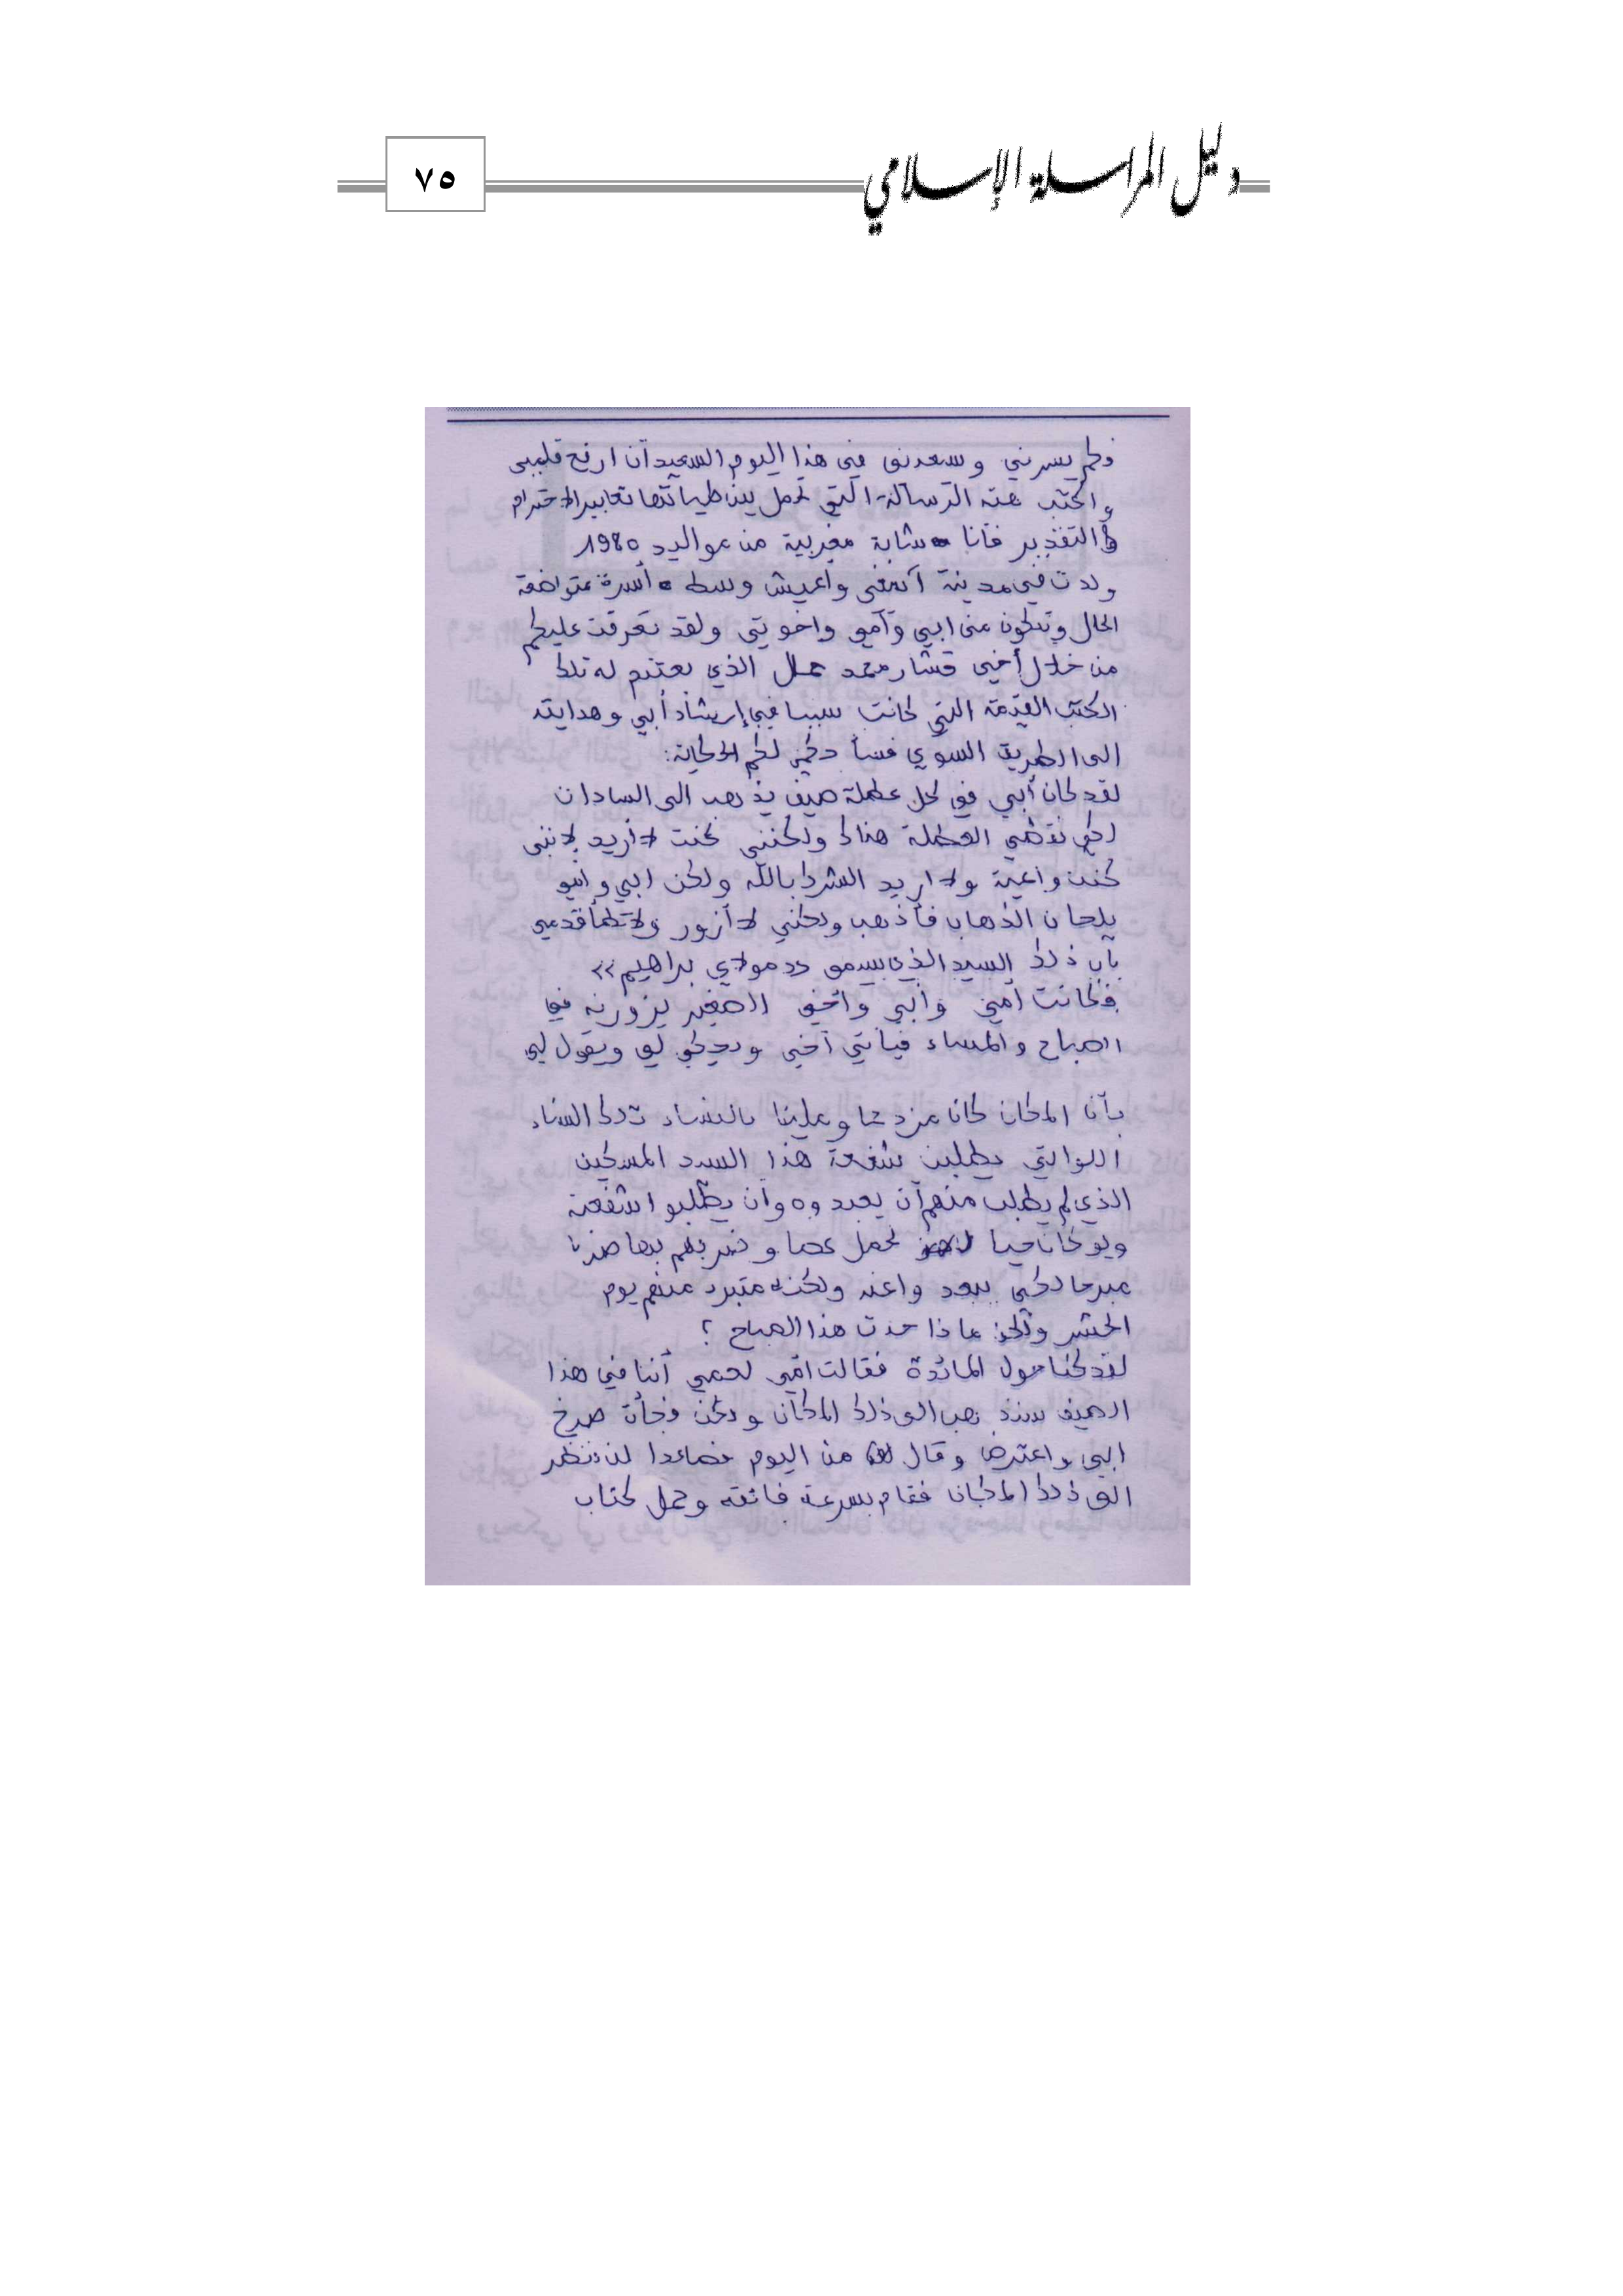 دليل المراسلة الإسلامي
٧٥
فلكم يسرني ويسعدني في هذا اليوم السعيد أن ارفع قلمي
واكتب هته الرسالة التي تحمل بين طياتها تعابير الاحترام
والتقدير فأنا شابة مغربية من مواليد 1980
ولدت في مدينة آسفي وأعيش وسط أسرة متواضعة
الحال وتتكون من ابي وأمي واخوتي ولقد تعرفت عليكم
من خلال أخي قشار محمد جمال الذي بعتتم له تلك
الكتب القيمة التي كانت سببا في إرشاد أبي وهدايته
الى الطريق السوي فسأ حكي لكم الحكاية:
لقد كان أبي في كل عطلة صيف يذهب الى السادات
لكي نقضي العطلة هناك ولكنني كنت لا أريد لانني
كنت واعية ولا اريد الشرك بالله ولكن ابي وأمي
يلحان الذهاب فأذهب ولكنني لا أزور ولا تطأ قدمي
باب ذلك السيد الذي يسمى «مولاي براهيم»
فكانت أمي وأبي وأخي الصغير يزورنه في
الصباح والمساء فيأتي أخي ويحكي لي ويقول لي
بأن المكان كان مزدحما ومليئا بالنساء تلك النساء
اللواتي يطلبن شفعة هذا السيد المسكين
الذي لم يطلب منهم أن يعبدوه وأن يطلبو اشفعته
ولو كان حيا لحمل عصا و ضربهم بها ضربا
مبرحا لكي يبعد واعنه ولكنه متبرئ منهم يوم
الحشر ولكن ماذا حدت هذا الصباح ؟
لقد كنا حول المائدة فقالت أمي لعمي أننا في هذا
الصيف سنذ هب الى ذلك المكان ولكن فجأة صرخ
ابي واعترض وقال من اليوم فصاعدا لن ننظر
الى ذلك المكان فقام بسرعة فائقة وحمل كتاب